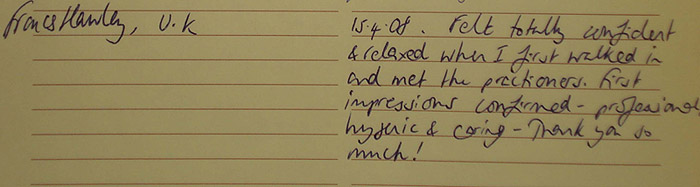 Frances Hawley, U.K
15.4.08. Felt totally confident
& relaxed when I first walked in
and met the practioners. First
impressions confirmed - professional,
hygenic & caring - Thank you so
much!